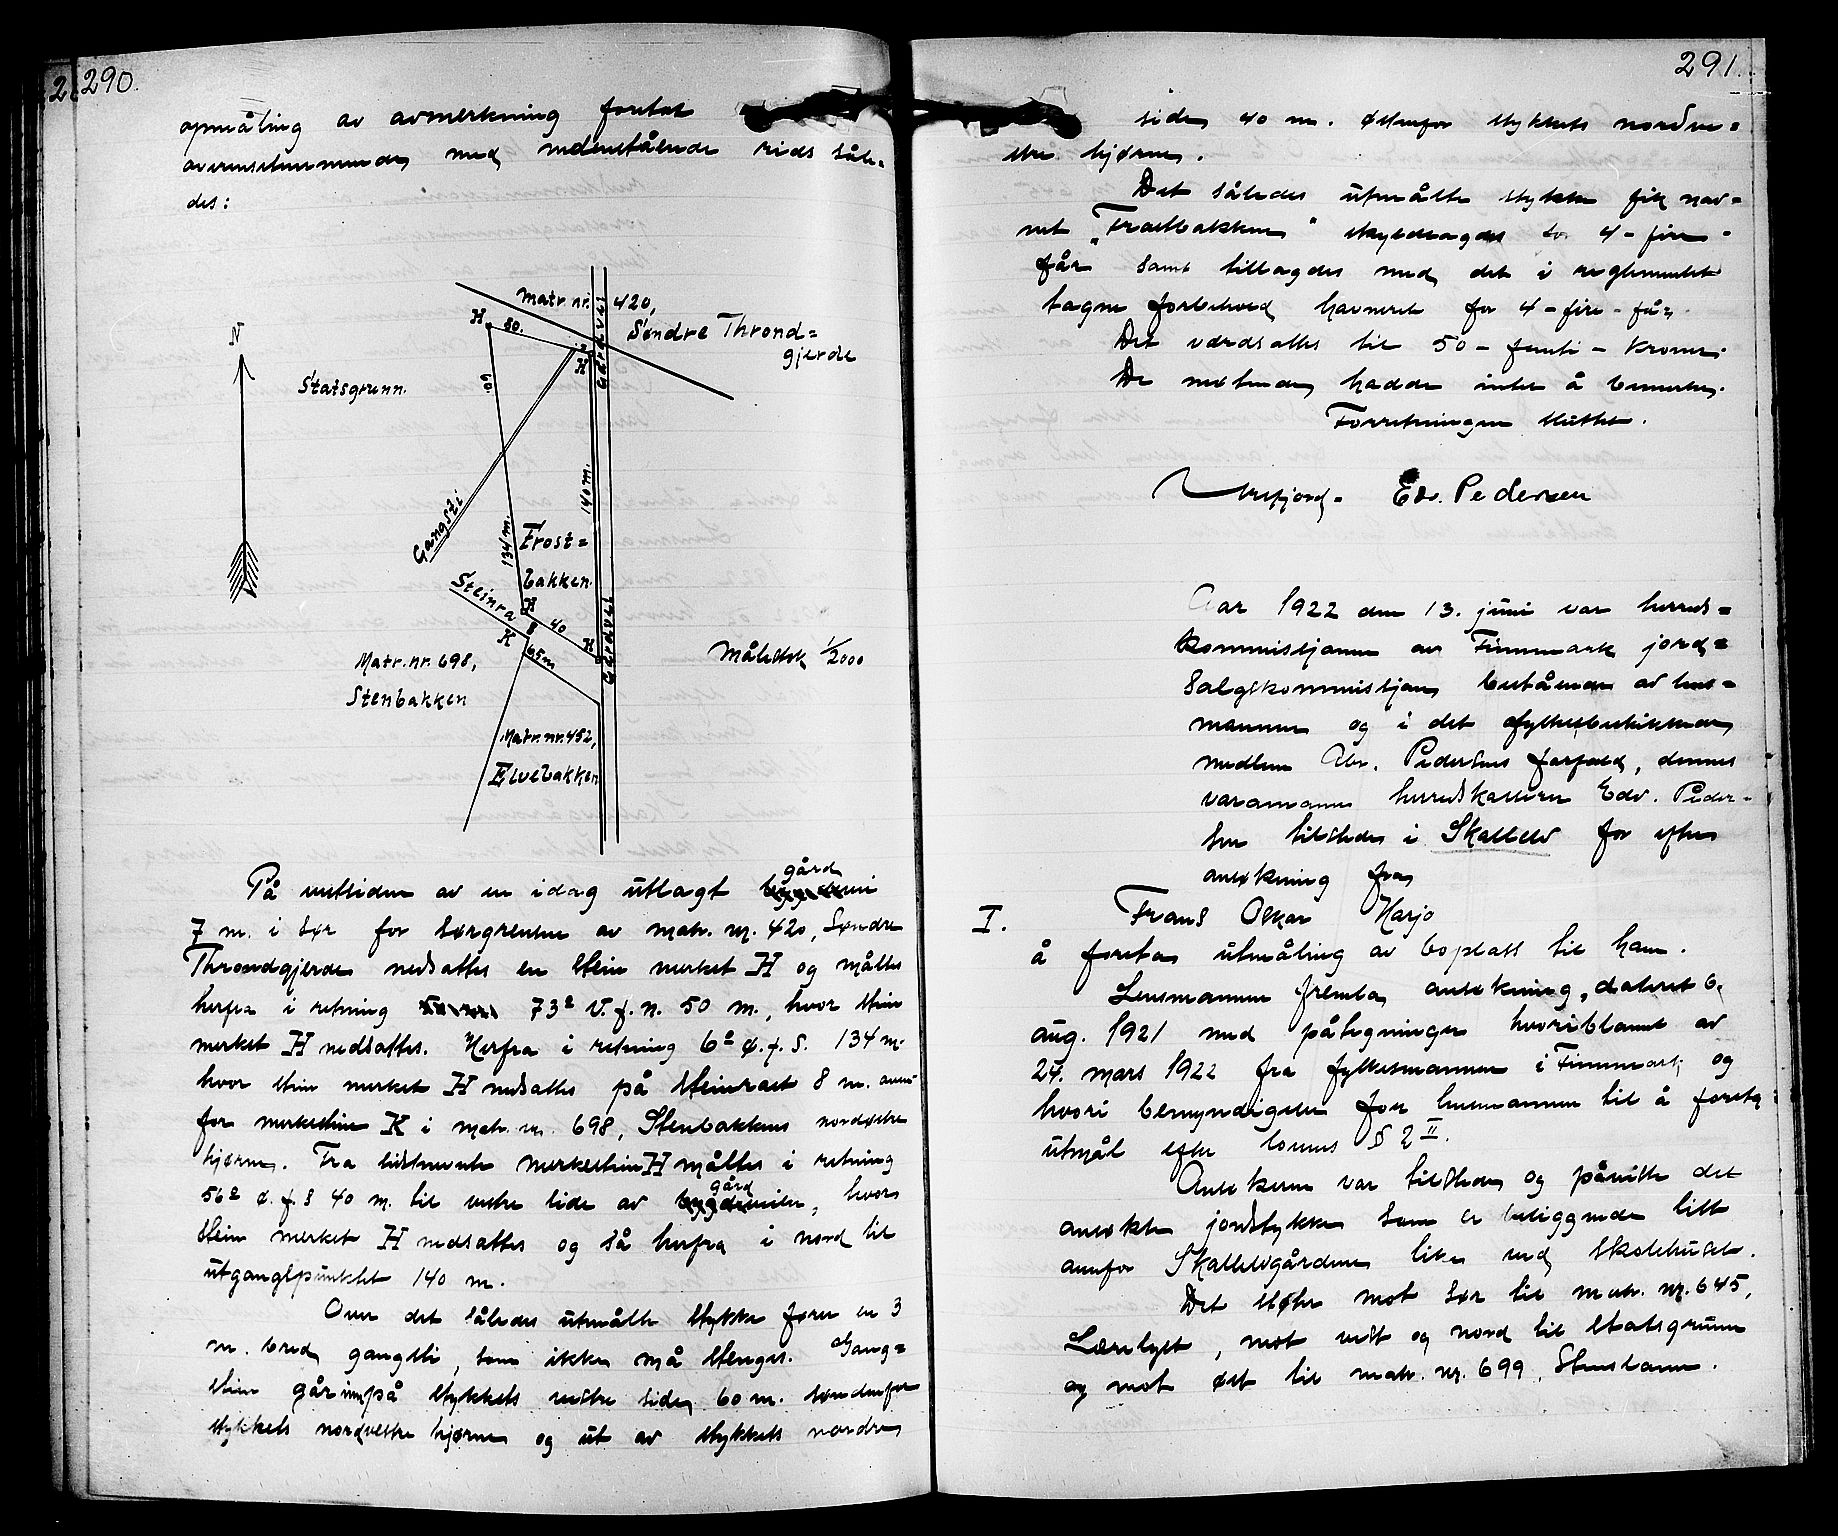 290.
opmåling av avmerkning foretat
overensstemmende med nedenstående rids såle=
des:
N
Matr. nr. 420,
Søndre Thrond=
gjerde
H 50. H
Gårdvei
60.
Statsgrunn.
140 m.
Gangsti
134 m.
Frost=
bakken.
Steinra
H
8
40
H
K
65 m
Gårdvei
Målestok 1/2000
Matr. nr. 698,
Stenbakken
Matr. nr. 452,
Elvebakken
På vestsiden av en idag utlagt gård vei
7 m. i sør for sørgrensen av matr. nr. 420, Søndre
Throndgjerde nedsattes en stein merket H og måltes
herfra i retning 73° V. f. n. 50 m., hvor stein
merket H nedsattes. Herfra i retning 6° ø. f. S. 134 m.
hvor stein merket H nedsattes på steinraet 8 m. oven=
for merkestein K i matr. nr. 698, Stenbakkens nordøstre
hjørne. Fra sistnevnte merkestein H måltes i retning
56° ø. f. S 40 m. til vestre side av gård veien, hvor
stein merket H nedsattes og så herfra i nord til
utgangspunktet 140 m.
Over det således utmålte stykke fører en 3
m. bred gangsti, som ikke må stenges. Gang=
stien går innpå stykkets vestre side 60 m. søndenfor
stykkets nordvestre hjørne og ut av stykkets nordre
291.
side 40 m. østenfor stykkets nordve=
stre hjørne.
Det således utmålte stykke fik nav=
net "Frostbakken" skyldsattes for 4-fire-
får samt tillagdes med det i reglementet
tagne forbehold havneret for 4-fire-får.
Det værdsattes til 50-femti-kroner.
De møtende hadde intet å bemerke.
Forretningen sluttet.
Edv. Pedersen
Aar 1922 den 13. juni var herreds=
kommissjonen av Finnmark jord=
salgskommissjon bestående av lens=
mannen og i det fylkesbeskikkede
medlem Abr. Pedersens forfald, dennes
varamann herredskasserer Edv. Peder=
sen tilstede i Skallelv for efter
ansøkning fra
I. Frans Oskar Harjo
å foreta utmåling av boplass til ham.
Lensmannen fremla ansøkning, dateret 6.
aug. 1921 med påtegninger hvoriblannt av
24. mars 1922 fra fylkesmannen i Finnmark og
hvori bemyndigelse for lensmannen til å foreta
utmål efter lovens § 2 II.
Ansøkeren var tilstede og påviste det
ansøkte jordstykke som er beliggende litt
ovenfor Skallelvgårdene like ved skolehuset.
Det støter mot sør til matr. nr. 645,
Lærelyst, mot vest og nord til statsgrunn
og mot øst til matr. nr. 699,